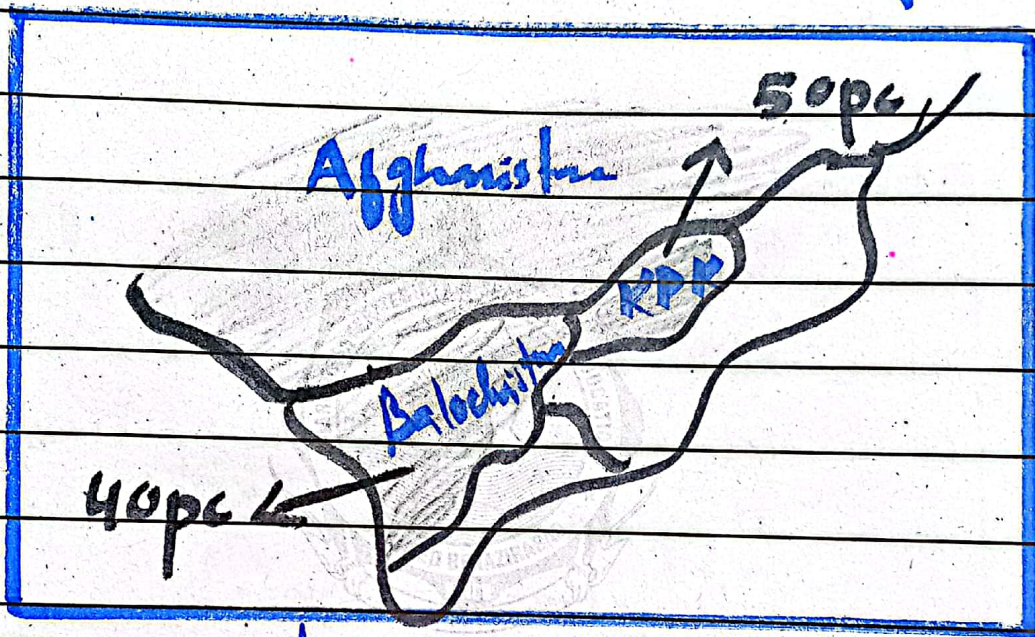 50pc
Afghanistan
KPK
Balochistan
40pc